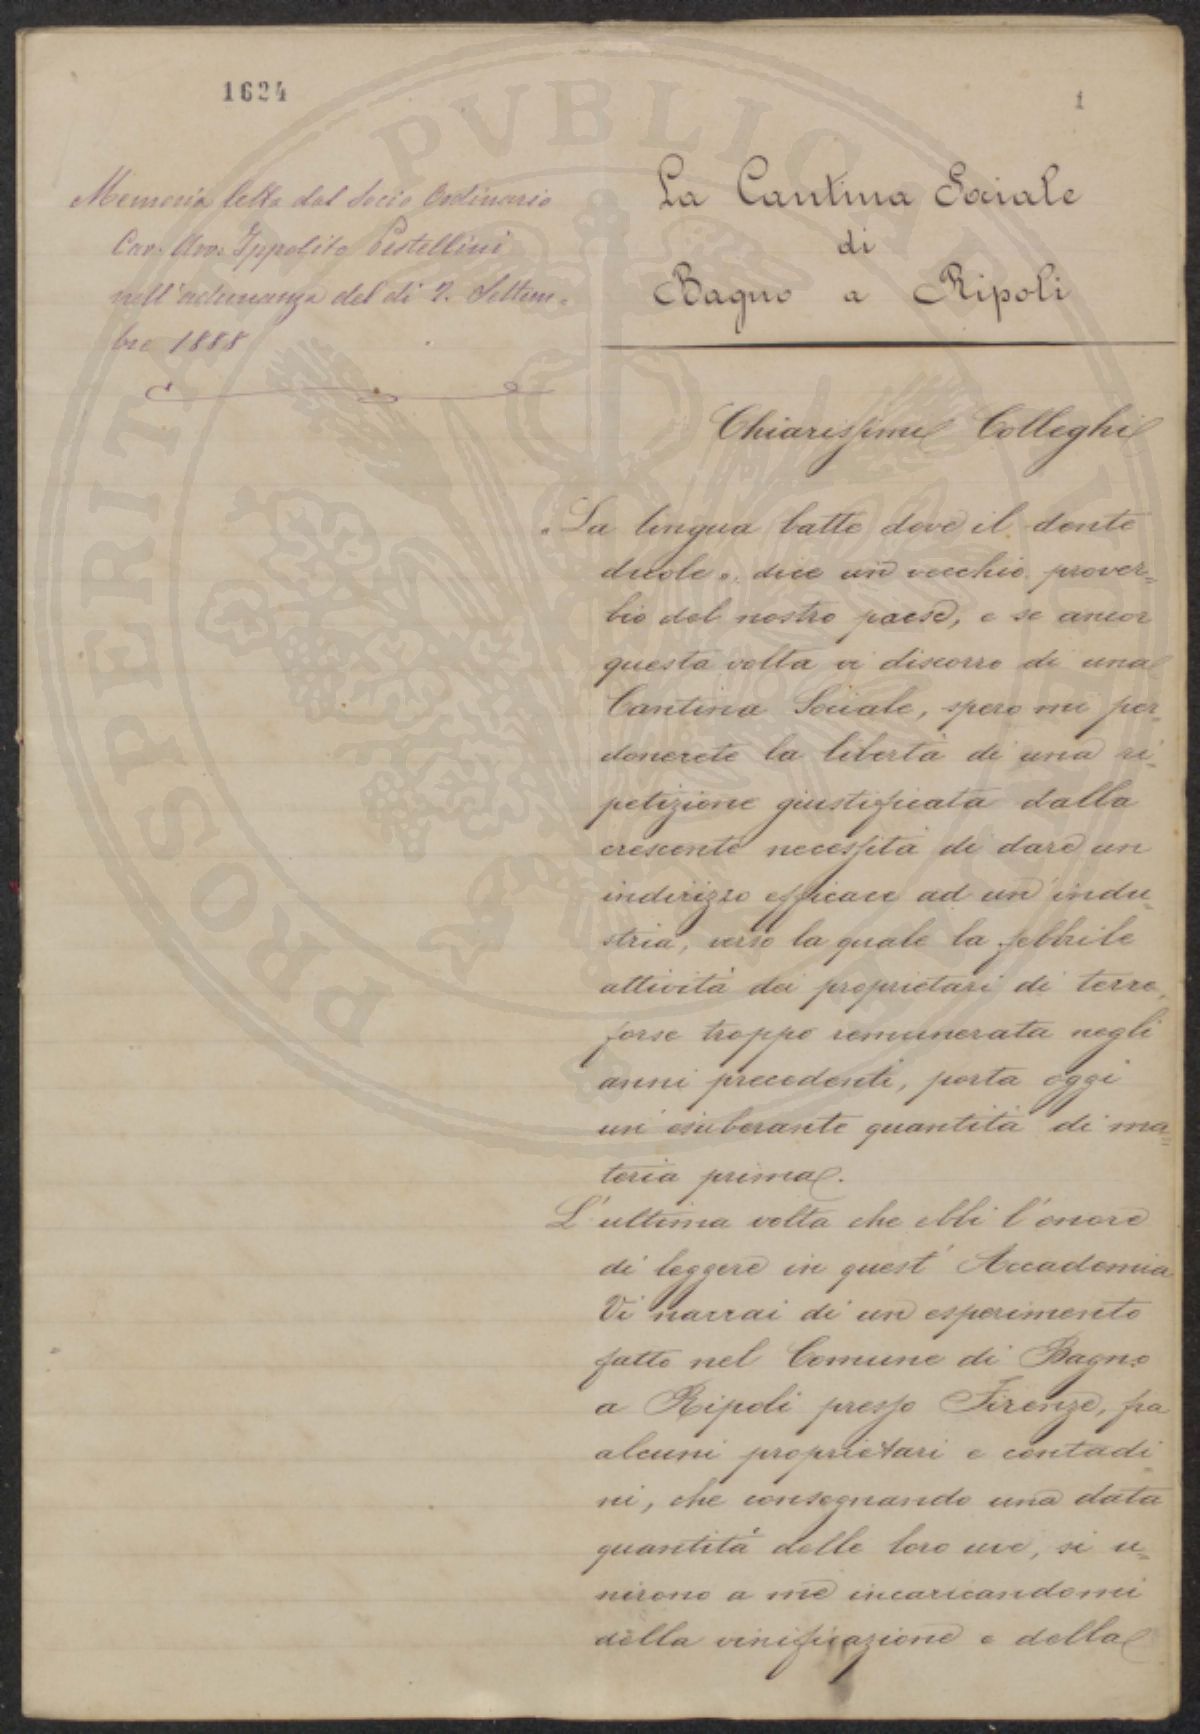 1624
1
Memoria letta dal Socio Ordinario
Cav. Avv. Ippolito Pestellini
nell'adunanza del dì 2. Settem=
bre 1888
La Cantina Sociale
di
Bagno a Ripoli
Chiarissimi Colleghi
"La lingua batte dove il dente
duole". dice un vecchio prover=
bio del nostro paese, e se ancor
questa volta vi discorro di una
Cantina Sociale, spero mi per=
donerete la libertà di una ri=
petizione giustificata dalla
crescente necessità di dare un
indirizzo efficace ad un'indu=
stria, verso la quale la febbrile
attività dei proprietari di terre,
forse troppo remunerata negli
anni precedenti, porta oggi
un'esuberante quantità di ma=
teria prima.
L'ultima volta che ebbi l'onore
di leggere in quest'Accademia
Vi narrai di un esperimento
fatto nel Comune di Bagno
a Ripoli presso Firenze, fra
alcuni proprietari e contadi=
ni, che consegnando una data
quantità delle loro uve, si u=
nirono a me incaricandomi
della vinificazione e della
PROSPERITATI PVBLICAE